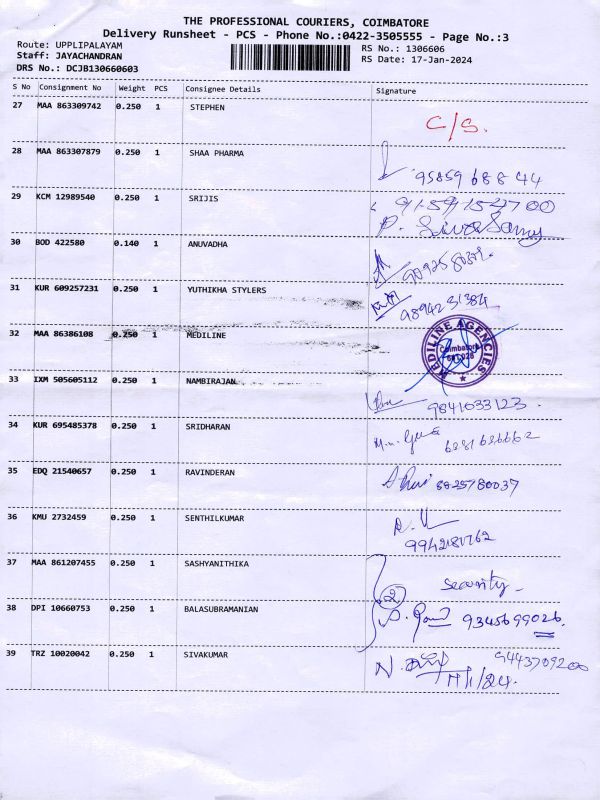 THE PROFESSIONAL COURIERS, COIMBATORE
Delivery Runsheet - PCS - Phone No.:0422-3505555 - Page No.:3
Route: UPPLIPALAYAM
Staff: JAYACHANDRAN
DRS No.: DCJB130660603
RS No.: 1306606
RS Date: 17-Jan-2024
S No Consignment No Weight PCS Consignee Details Signature
27 MAA 863309742 0.250 1 STEPHEN C/S.
28 MAA 863307879 0.250 1 SHAA PHARMA
95859 688 44
29 KCM 12989540 0.250 1 SRIJIS
P. SivaSamy
30 BOD 422580 0.140 1 ANUVADHA
31 KUR 609257231 0.250 1 YUTHIKHA STYLERS
9894231384
32 MAA 86386108 0.250 1 MEDILINE
MEDILINE AGENCIES
Coimbatore
33 IXM 505605112 0.250 1 NAMBIRAJAN
9841033123.
34 KUR 695485378 0.250 1 SRIDHARAN
35 EDQ 21540657 0.250 1 RAVINDERAN
8825780037
36 KMU 2732459 0.250 1 SENTHILKUMAR
37 MAA 861207455 0.250 1 SASHYANITHIKA
security
2
38 DPI 10660753 0.250 1 BALASUBRAMANIAN
9345699026.
39 TRZ 10020042 0.250 1 SIVAKUMAR
9443709200